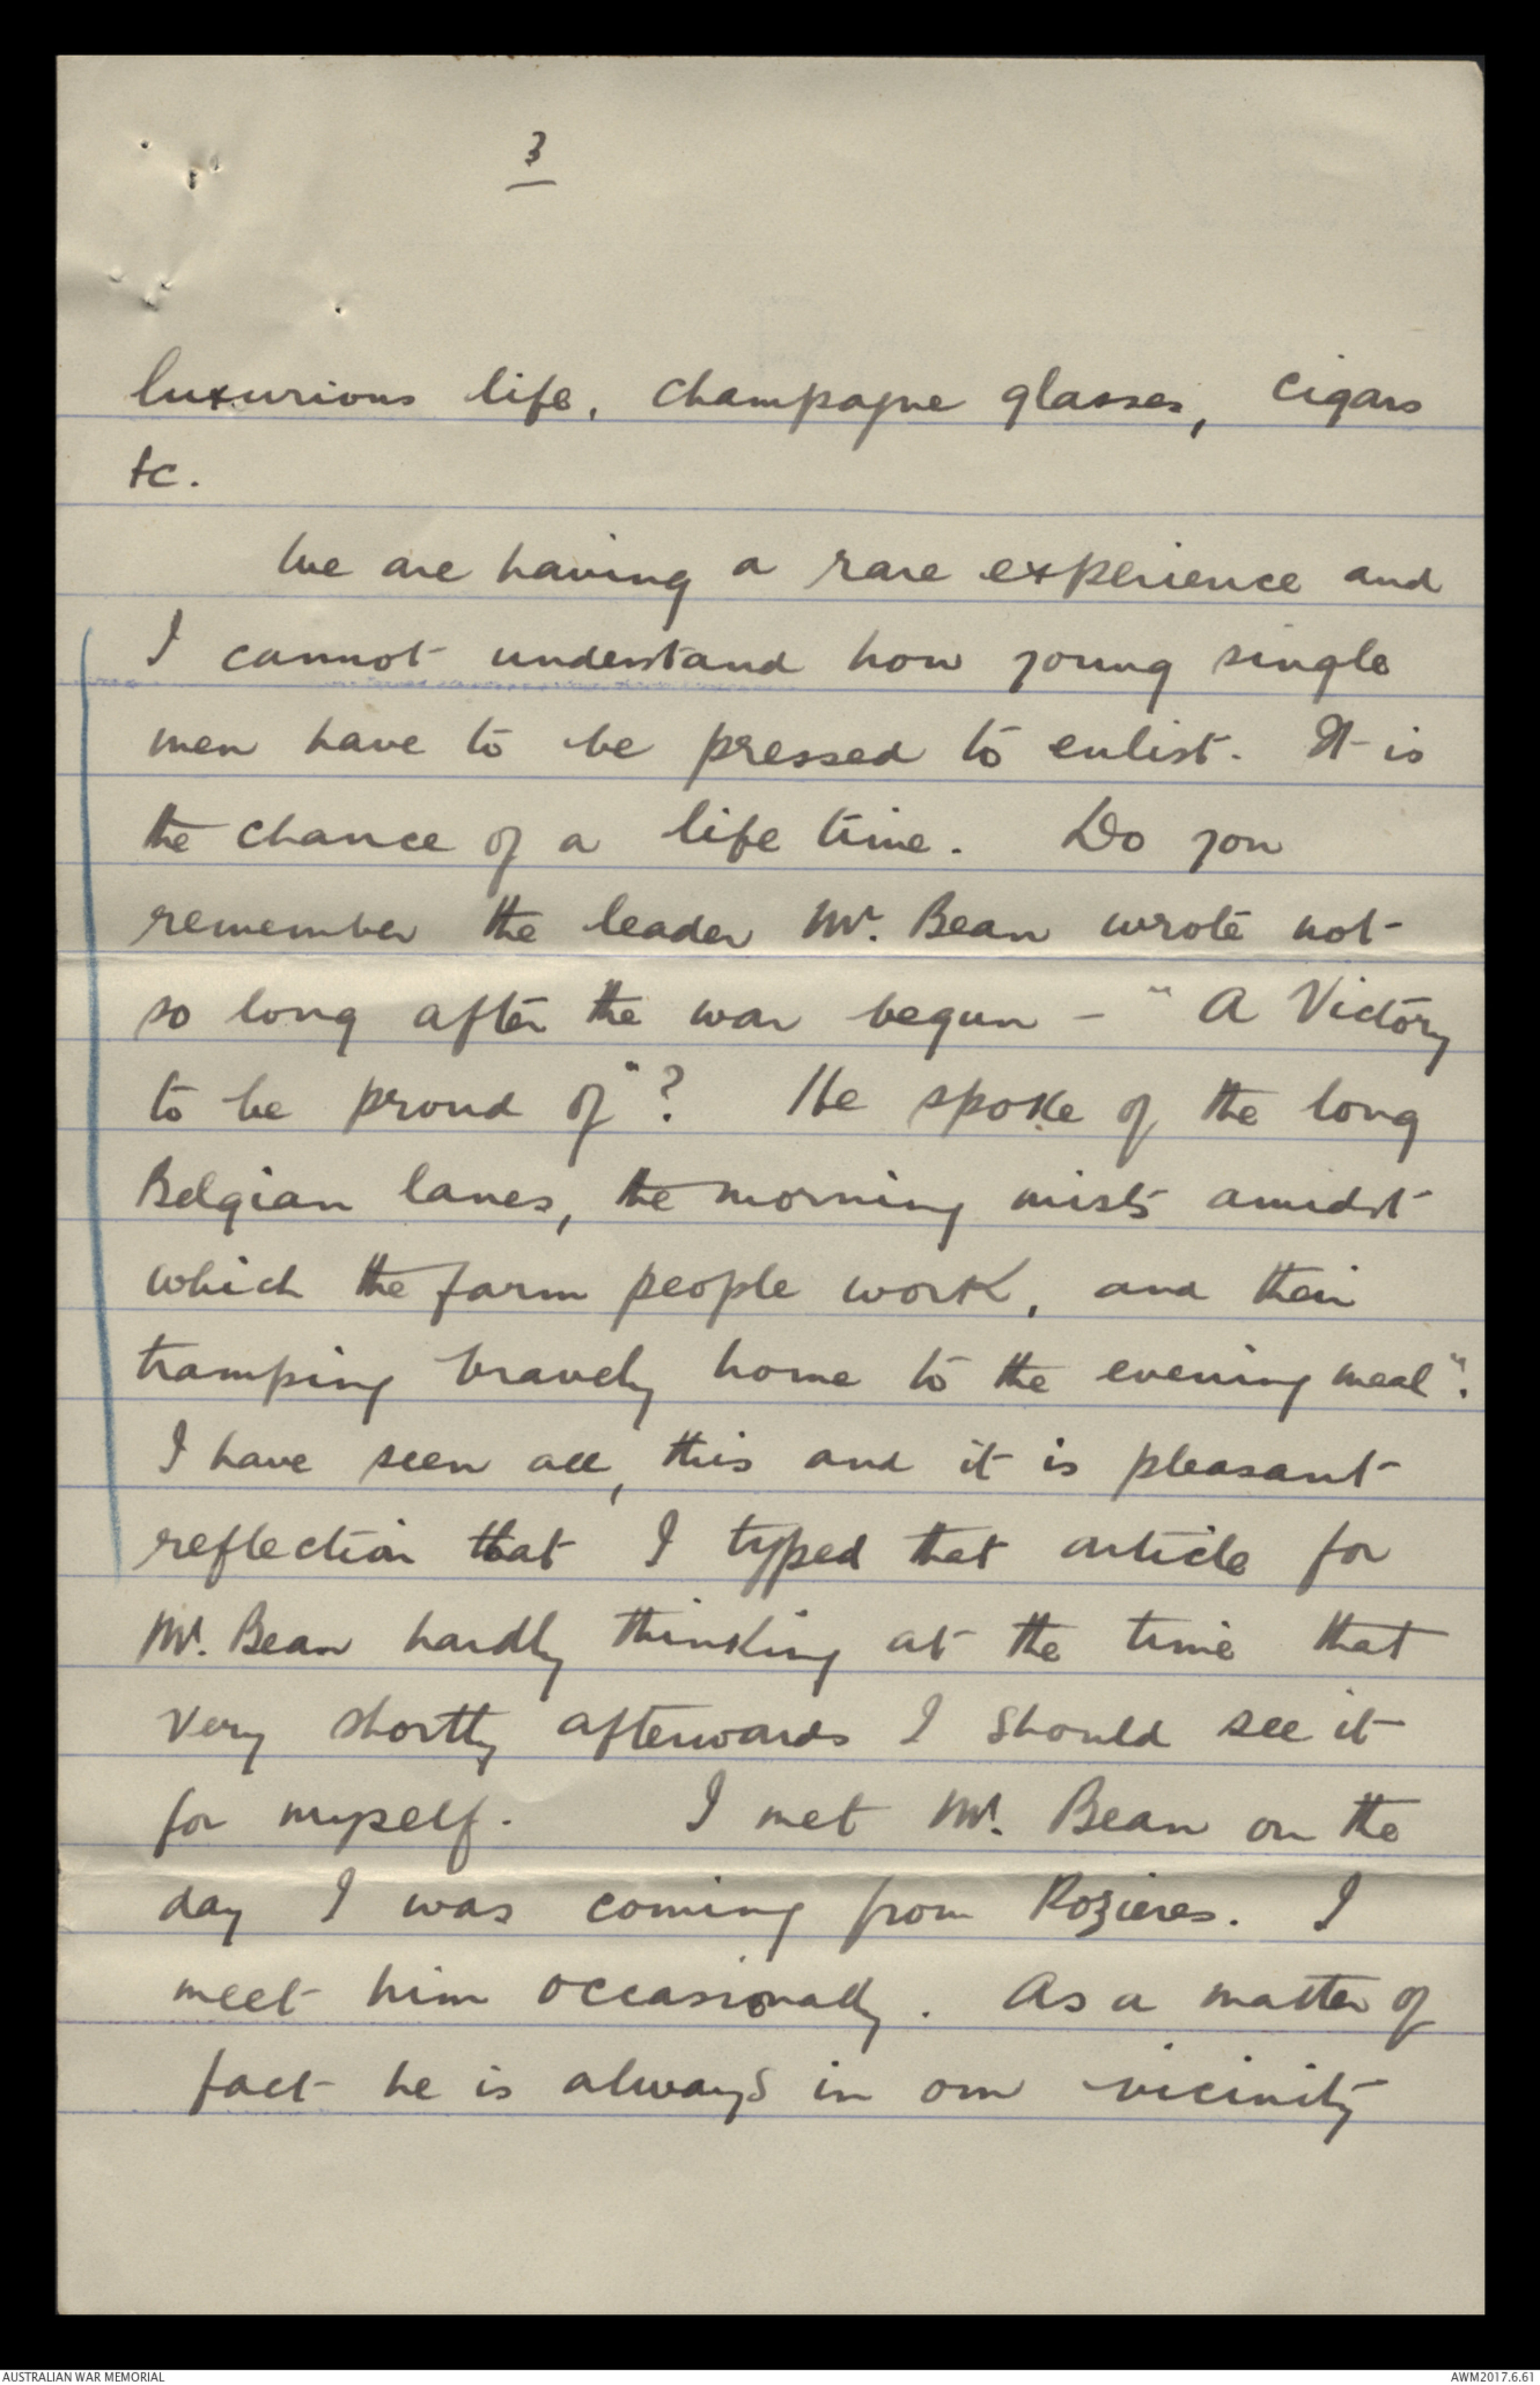 3
luxurious life, champagne glasses, cigars
tc.
We are having a rare experience and
I cannot understand how young single
men have to be pressed to enlist. It is
the chance of a life time. Do you
remember the leader Mr. Bean wrote not
so long after the war begun - "A Victory
to be proud of"? He spoke of the long
Belgian lanes, the morning mists amidst
which the farm people work, and their
tramping bravely home to the evening meal".
I have seen all, this and it is pleasant
reflection that I typed that article for
Mr. Bean hardly thinking at the time that
very shortly afterwards I should see it
for myself. I met Mr. Bean on the
day I was coming from Pozieres. I
meet him occasionally. As a matter of
fact he is always in our vicinity
AUSTRALIAN WAR MEMORIAL
AWM2017.6.61